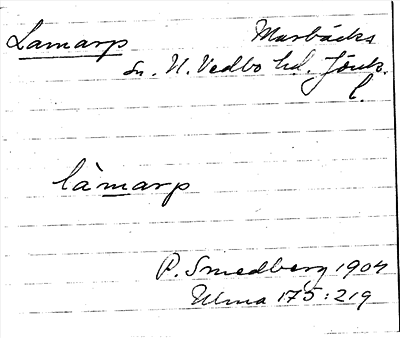 Lamarp Marbäcks
sn. N. Vedbo hd. Jönk.
l.
làmarp
P. Smedberg 1904
Ulma 175:219